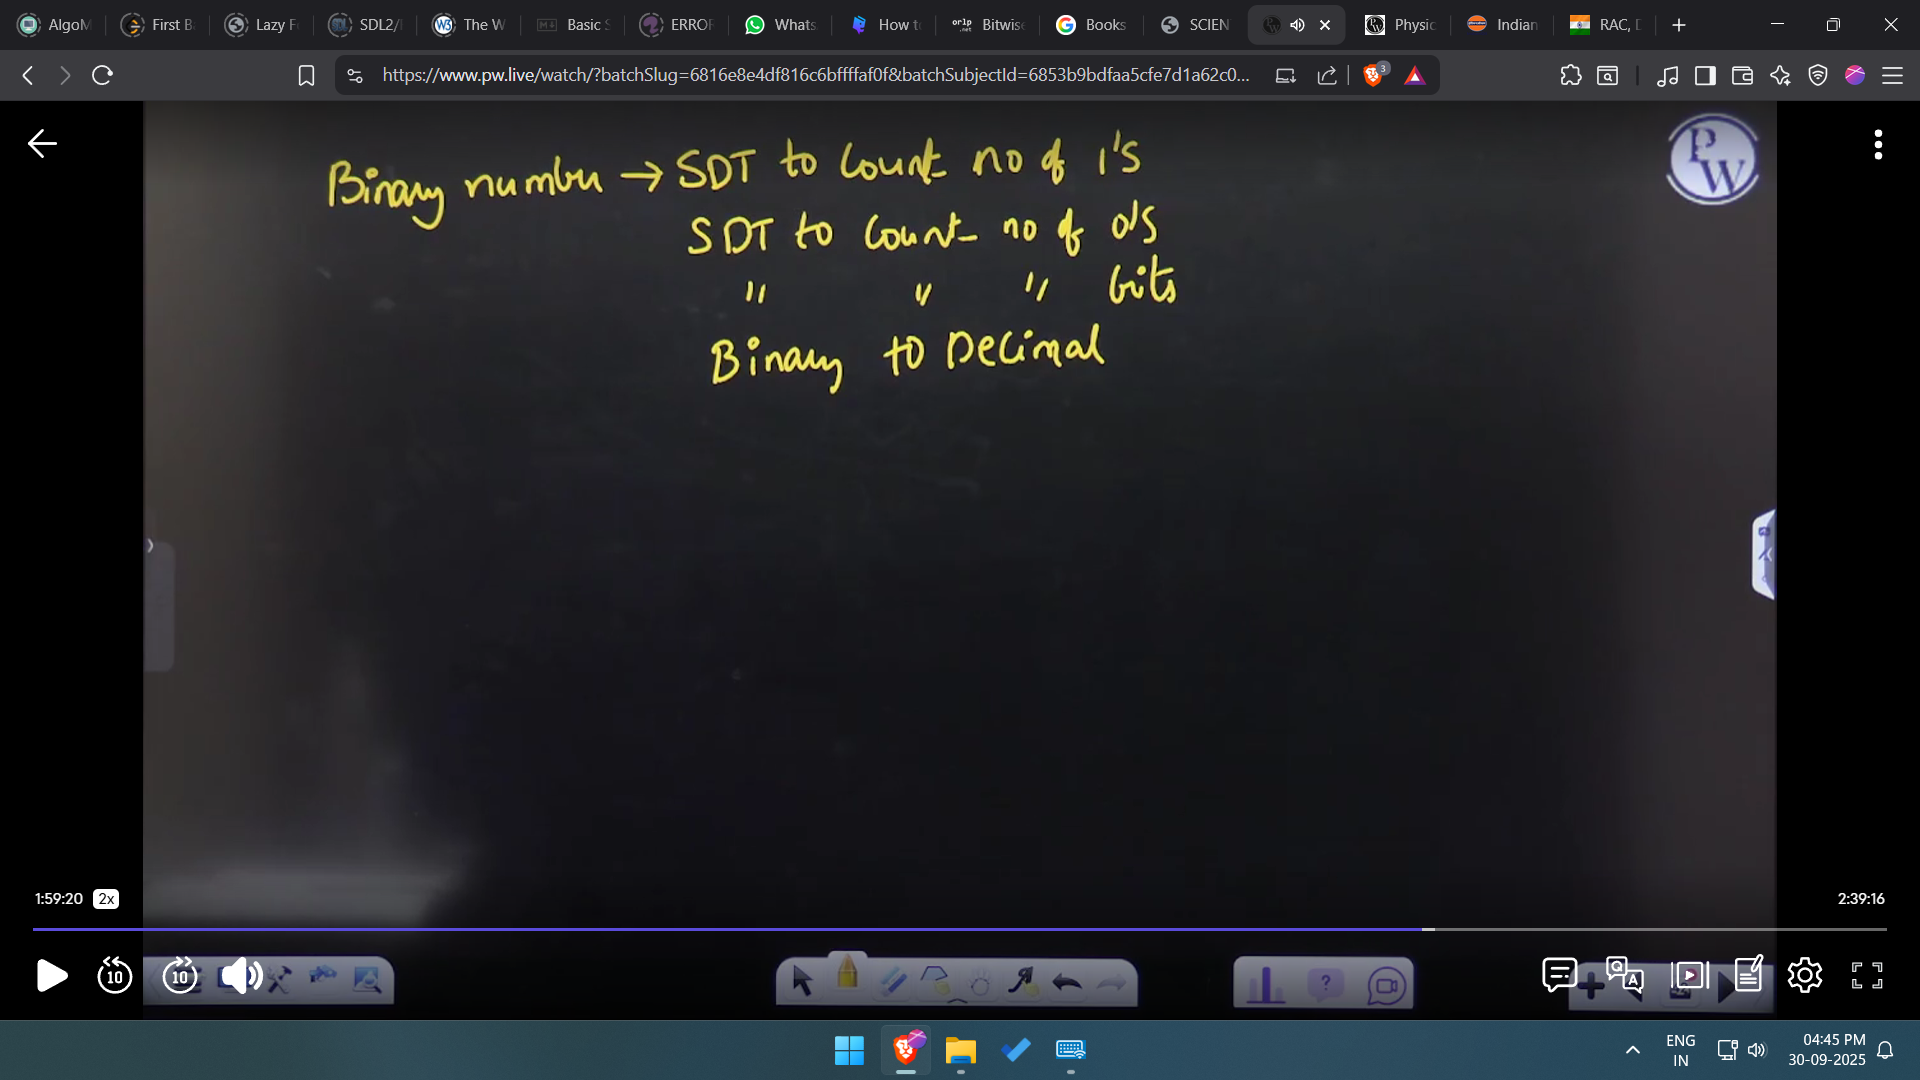 AlgoM
First B
Lazy F
SDL2/
The W
Basic S
ERROF
Whats
How t
orlp .net Bitwise
Books
SCIEN
Physic
Indian
RAC, D
https://www.pw.live/watch/?batchSlug=6816e8e4df816c6bffffaf0f&batchSubjectId=6853b9bdfaa5cfe7d1a62c0...
3
Binary number → SDT to Count no of 1's
PW
SDT to Count no of 0's
" " " bits
Binary to Decimal
1:59:20 2x
2:39:16
10
10
?
Q A
ENG
IN
04:45 PM
30-09-2025